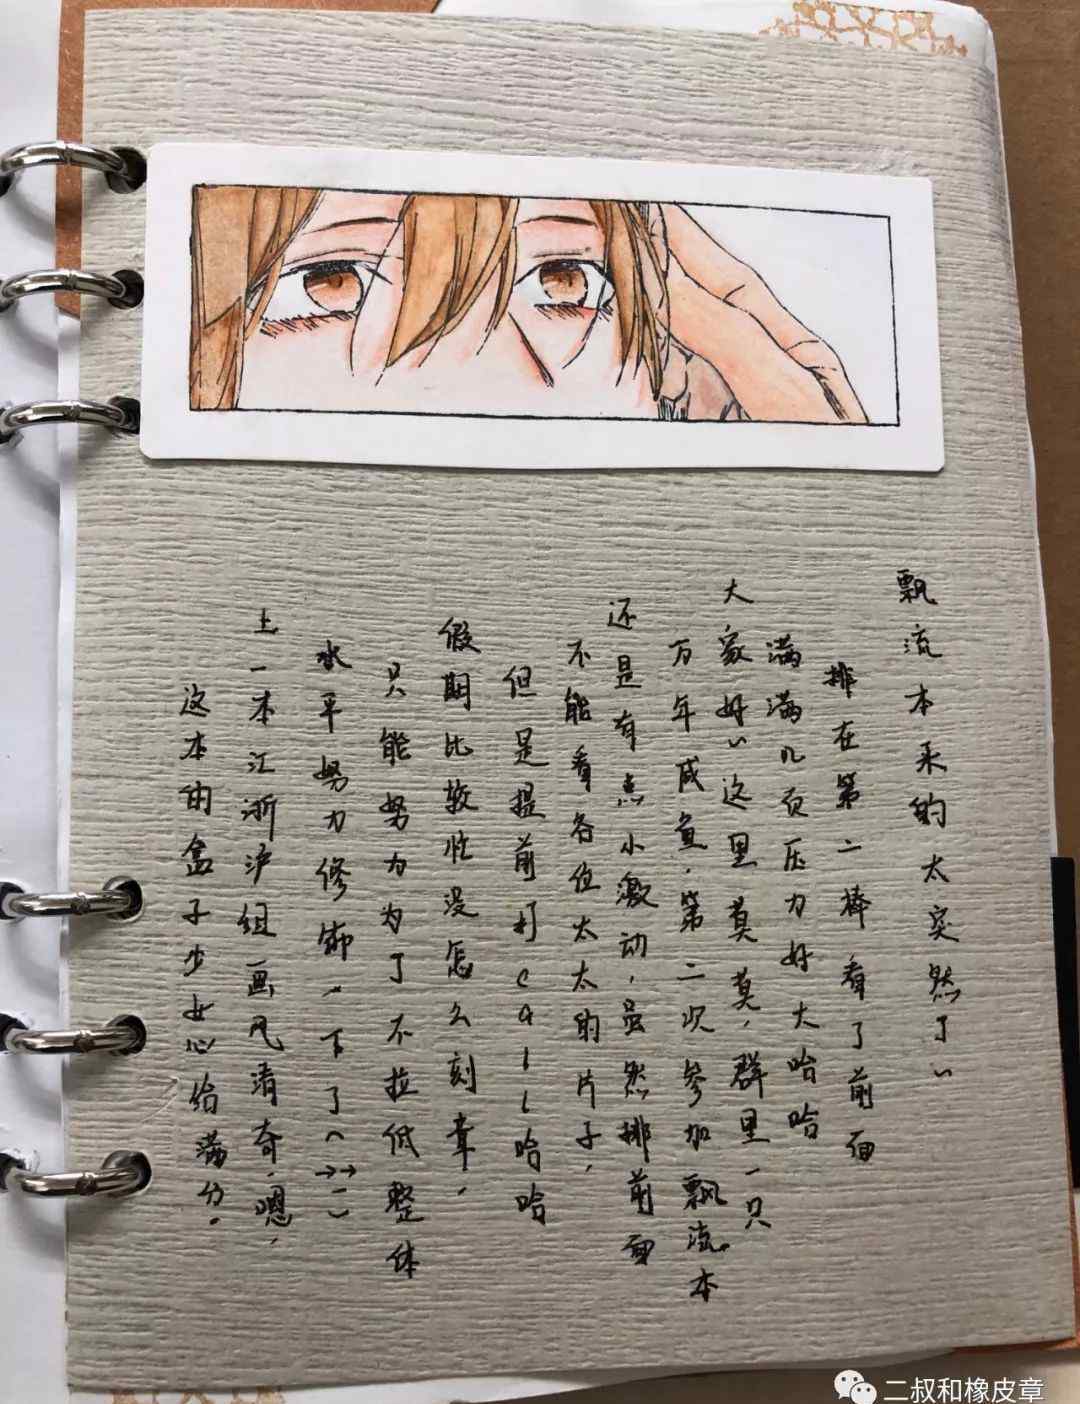 飘流本来的太突然了~
排在第二棒看了前面
满满几页压力好大哈哈
大家好~这里莫莫,群里一只
万年咸鱼.第二次参加飘流本
还是有点小激动,虽然排前面
不能看各位太太的片子,
但是提前打call哈哈
假期比较忙没怎么刻章,
只能努力为了不拉低整体
水平努力修饰一下了(→→)
上一本江浙沪组画风清奇.嗯,
这本的盒子少女心给满分.
二叔和橡皮章